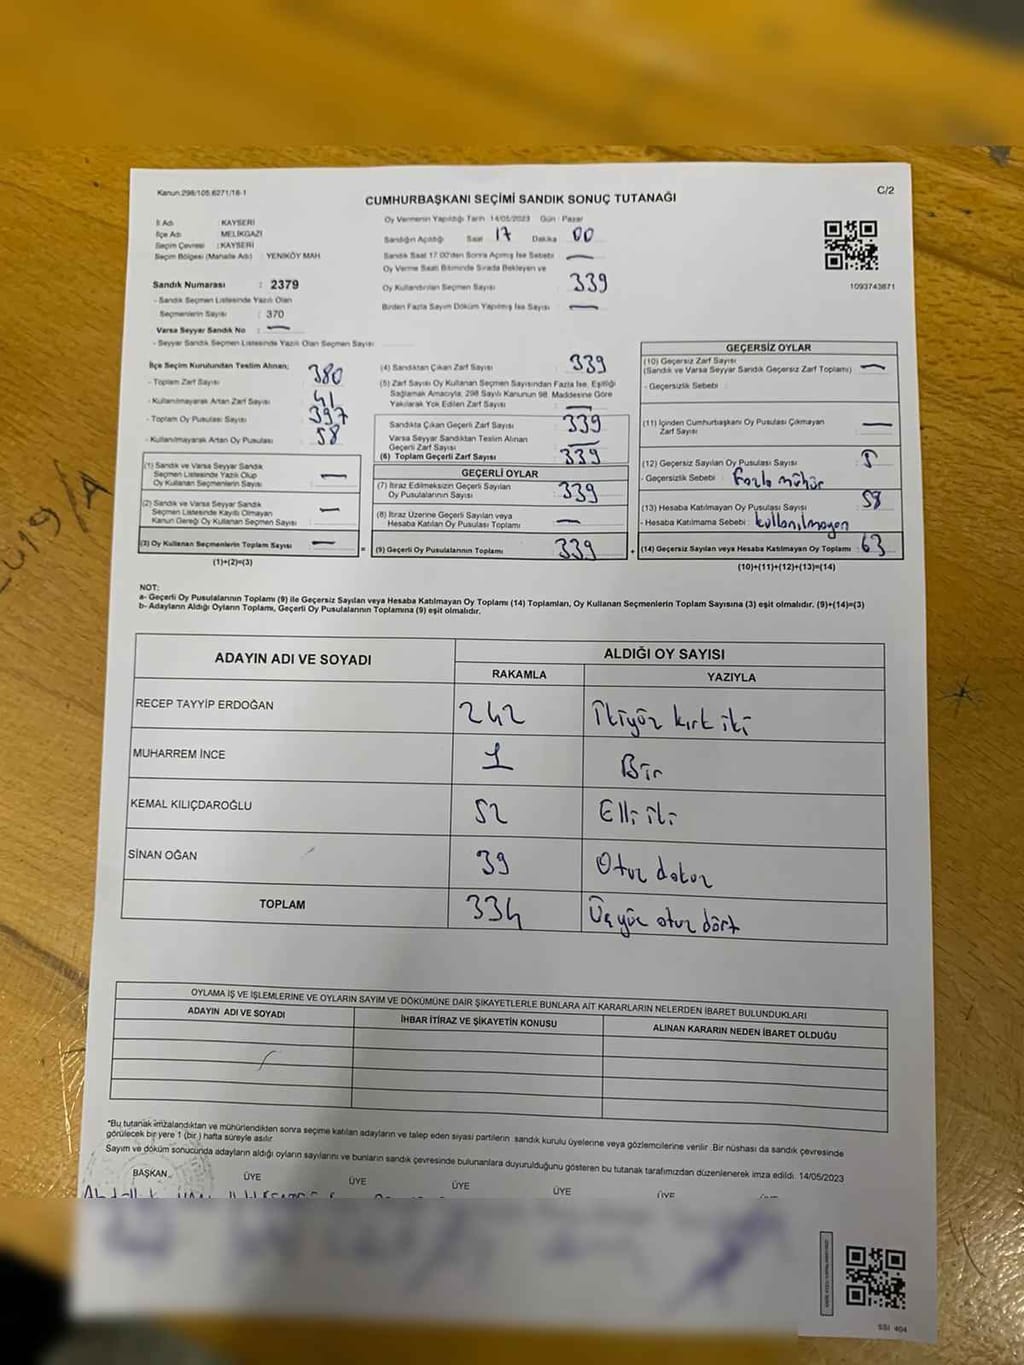 Kanun:298/105,6271/18-1
C/2
CUMHURBAŞKANI SEÇİMİ SANDIK SONUÇ TUTANAĞI
İl Adı : KAYSERİ
İlçe Adı : MELİKGAZİ
Seçim Çevresi : KAYSERİ
Seçim Bölgesi (Mahalle Adı) : YENİKÖY MAH
Sandık Numarası : 2379
- Sandık Seçmen Listesinde Yazılı Olan
Seçmenlerin Sayısı : 370
Varsa Seyyar Sandık No : —
- Seyyar Sandık Seçmen Listesinde Yazılı Olan Seçmen Sayısı :
Oy Vermenin Yapıldığı Tarih : 14/05/2023 Gün : Pazar
Sandığın Açıldığı Saat 17 Dakika 00
Sandık Saat 17:00'den Sonra Açılmış İse Sebebi —
Oy Verme Saati Bitiminde Sırada Bekleyen ve
Oy Kullandırılan Seçmen Sayısı 339
Birden Fazla Sayım Döküm Yapılmış İse Sayısı —
1093743871
İlçe Seçim Kurulundan Teslim Alınan;
- Toplam Zarf Sayısı : 380
- Kullanılmayarak Artan Zarf Sayısı : 41
- Toplam Oy Pusulası Sayısı : 397
- Kullanılmayarak Artan Oy Pusulası : 58
(1) Sandık ve Varsa Seyyar Sandık
Seçmen Listesinde Yazılı Olup
Oy Kullanan Seçmenlerin Sayısı : —
(2) Sandık ve Varsa Seyyar Sandık
Seçmen Listesinde Kayıtlı Olmayan
Kanun Gereği Oy Kullanan Seçmen Sayısı : —
(3) Oy Kullanan Seçmenlerin Toplam Sayısı : —
(1)+(2)=(3)
(4) Sandıktan Çıkan Zarf Sayısı : 339
(5) Zarf Sayısı Oy Kullanan Seçmen Sayısından Fazla İse, Eşitliği
Sağlamak Amacıyla; 298 Sayılı Kanunun 98. Maddesine Göre
Yakılarak Yok Edilen Zarf Sayısı : —
Sandıkta Çıkan Geçerli Zarf Sayısı : 339
Varsa Seyyar Sandıktan Teslim Alınan
Geçerli Zarf Sayısı : —
(6) Toplam Geçerli Zarf Sayısı : 339
GEÇERLİ OYLAR
(7) İtiraz Edilmeksizin Geçerli Sayılan
Oy Pusulalarının Sayısı : 339
(8) İtiraz Üzerine Geçerli Sayılan veya
Hesaba Katılan Oy Pusulası Toplamı : —
(9) Geçerli Oy Pusulalarının Toplamı : 339
GEÇERSİZ OYLAR
(10) Geçersiz Zarf Sayısı
(Sandık ve Varsa Seyyar Sandık Geçersiz Zarf Toplamı) : —
- Geçersizlik Sebebi :
(11) İçinden Cumhurbaşkanı Oy Pusulası Çıkmayan
Zarf Sayısı : —
(12) Geçersiz Sayılan Oy Pusulası Sayısı : 5
- Geçersizlik Sebebi : Fazla mühür
(13) Hesaba Katılmayan Oy Pusulası Sayısı : 58
- Hesaba Katılmama Sebebi : kullanılmayan
(14) Geçersiz Sayılan veya Hesaba Katılmayan Oy Toplamı : 63
(10)+(11)+(12)+(13)=(14)
NOT:
a- Geçerli Oy Pusulalarının Toplamı (9) ile Geçersiz Sayılan veya Hesaba Katılmayan Oy Toplamı (14) Toplamları, Oy Kullanan Seçmenlerin Toplam Sayısına (3) eşit olmalıdır. (9)+(14)=(3)
b- Adayların Aldığı Oyların Toplamı, Geçerli Oy Pusulalarının Toplamına (9) eşit olmalıdır.
ADAYIN ADI VE SOYADI
ALDIĞI OY SAYISI
RAKAMLA YAZIYLA
RECEP TAYYİP ERDOĞAN 242 İkiyüz kırk iki
MUHARREM İNCE 1 Bir
KEMAL KILIÇDAROĞLU 52 Elli iki
SİNAN OĞAN 39 Otuz dokuz
TOPLAM 334 Üçyüz otuz dört
OYLAMA İŞ VE İŞLEMLERİNE VE OYLARIN SAYIM VE DÖKÜMÜNE DAİR ŞİKAYETLERLE BUNLARA AİT KARARLARIN NELERDEN İBARET BULUNDUKLARI
ADAYIN ADI VE SOYADI İHBAR İTİRAZ VE ŞİKAYETİN KONUSU ALINAN KARARIN NEDEN İBARET OLDUĞU
*Bu tutanak imzalandıktan ve mühürlendikten sonra seçime katılan adayların ve talep eden siyasi partilerin sandık kurulu üyelerine veya gözlemcilerine verilir. Bir nüshası da sandık çevresinde
görülecek bir yere 1 (bir ) hafta süreyle asılır.
Sayım ve döküm sonucunda adayların aldığı oyların sayılarını ve bunların sandık çevresinde bulunanlara duyurulduğunu gösteren bu tutanak tarafımızdan düzenlenerek imza edildi. 14/05/2023
BAŞKAN ÜYE ÜYE ÜYE ÜYE ÜYE ÜYE
SSI 404